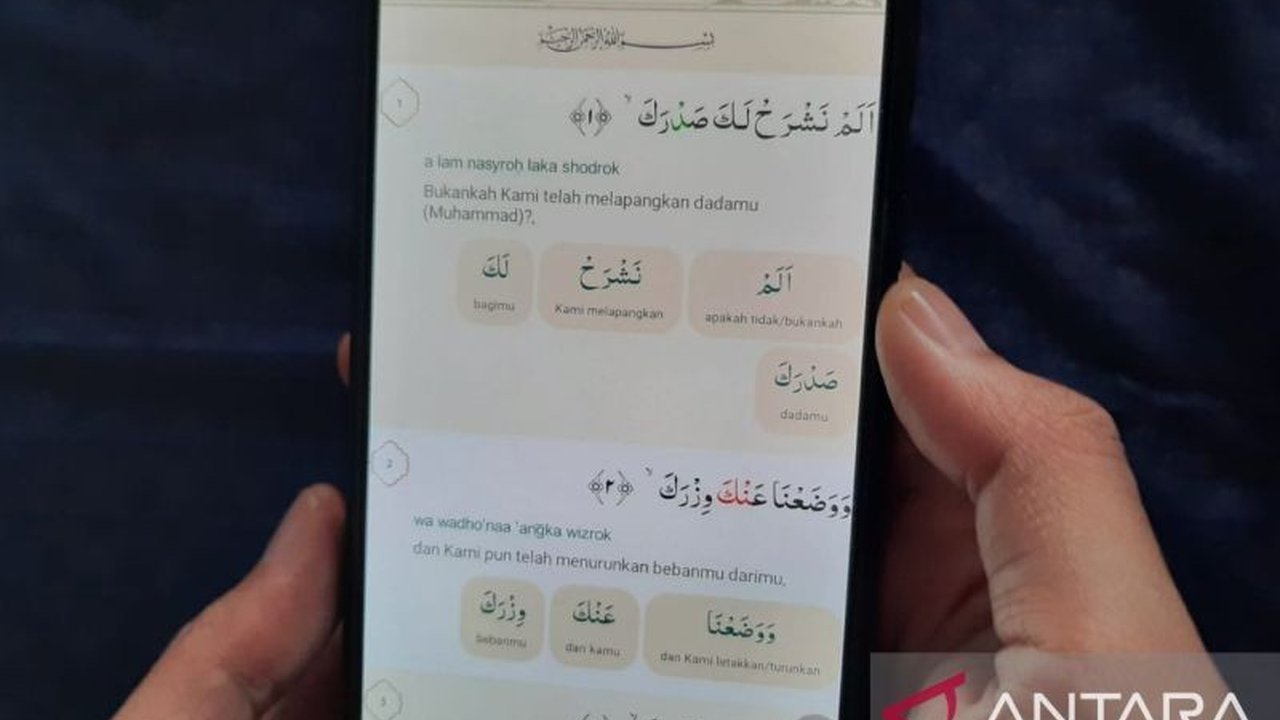 بِسْمِ اللّٰهِ الرَّحْمٰنِ الرَّحِيْمِ
1
اَلَمْ نَشْرَحْ لَكَ صَدْرَكَ ۙ ﴿١﴾
a lam nasyroḥ laka shodrok
Bukankah Kami telah melapangkan dadamu
(Muhammad)?,
اَلَمْ نَشْرَحْ لَكَ
apakah tidak/bukankah Kami melapangkan bagimu
صَدْرَكَ
dadamu
2
وَوَضَعْنَا عَنْكَ وِزْرَكَ ۙ ﴿٢﴾
wa wadho'naa 'ang̃ka wizrok
dan Kami pun telah menurunkan bebanmu darimu,
وَوَضَعْنَا عَنْكَ وِزْرَكَ
dan Kami letakkan/turunkan dan kamu bebanmu
3
ANTARA